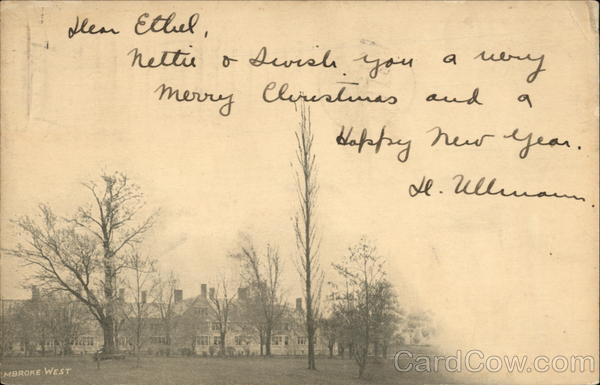 Dear Ethel,
Nettie & I wish you a very
Merry Christmas and a
Happy New Year.
H. Ullmann.
MBROKE WEST
CardCow.com